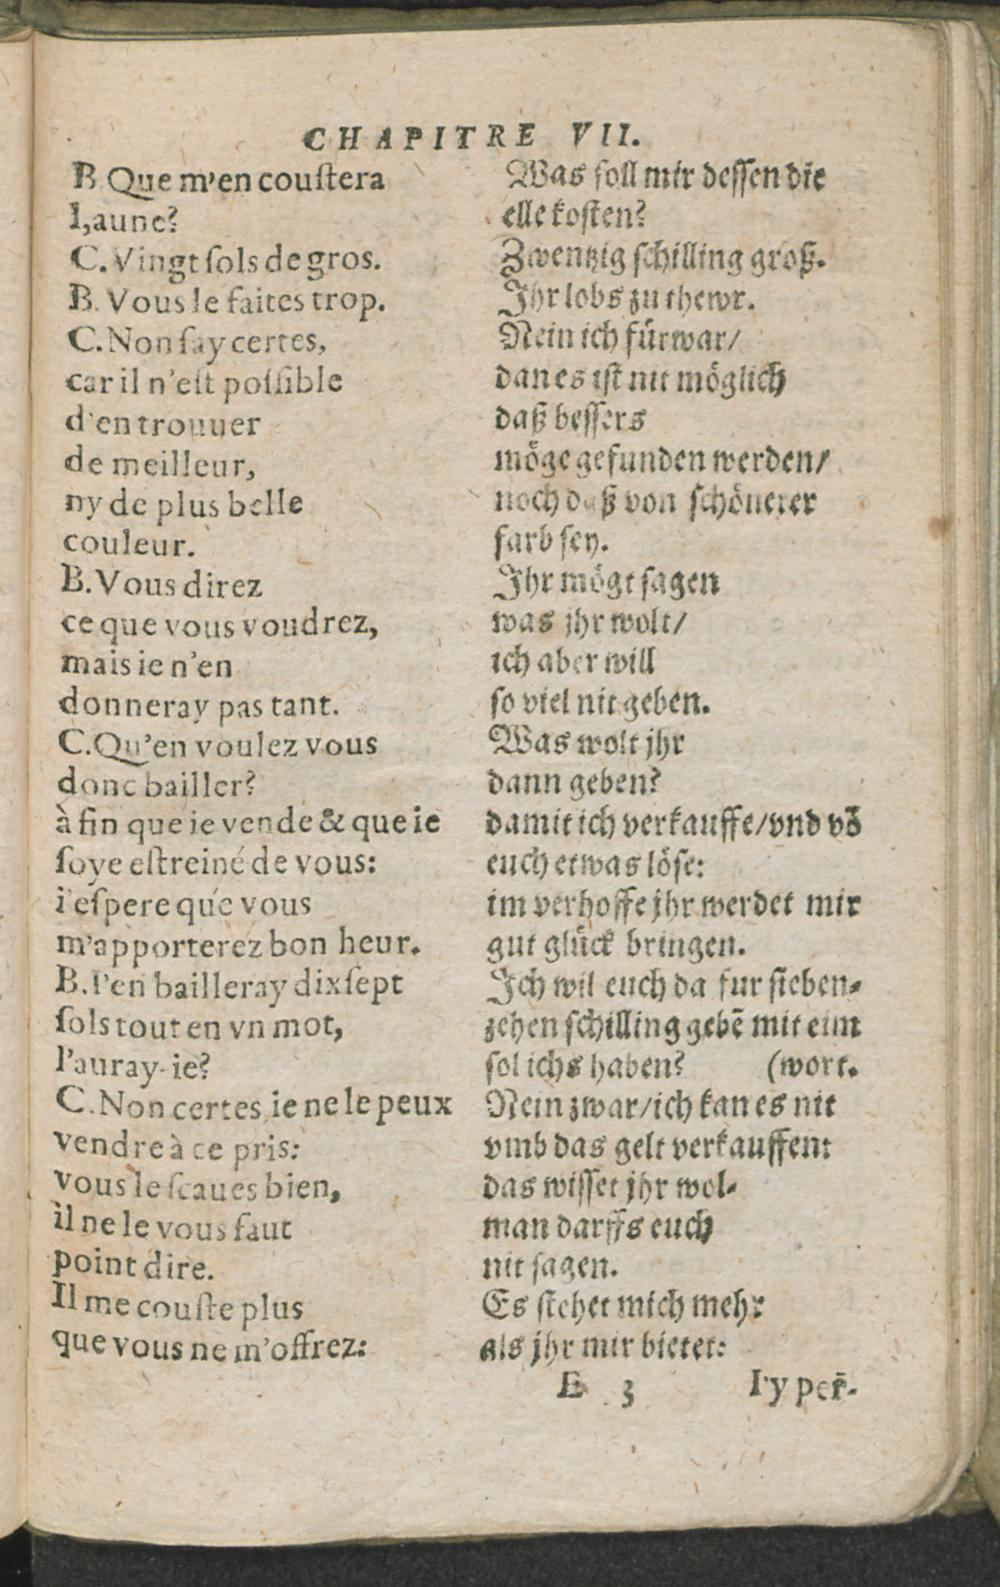 CHAPITRE VII.
B Que m'en couſtera
l,aune?
C. Vingt ſols de gros.
B. Vous le faites trop.
C. Non fay certes,
car il n'eſt poſſible
d'en trouuer
de meilleur,
ny de plus belle
couleur.
B. Vous direz
ce que vous voudrez,
mais ie n'en
donneray pas tant.
C. Qu'en voulez vous
donc bailler?
à fin que ie vende & que ie
ſoye eſtreiné de vous:
i'eſpere que vous
m'apporterez bon heur.
B. I'en bailleray dixſept
ſols tout en vn mot,
l'auray-ie?
C. Non certes ie ne le peux
vendre à ce pris:
vous le ſcaues bien,
il ne le vous faut
point dire.
Il me couſte plus
que vous ne m'offrez:
Was ſoll mir deſſen die
elle koſten?
Zwentzig ſchilling groß.
Ihr lobs zu thewr.
Nein ich fürwar/
dan es iſt nit möglich
daß beſſers
möge gefunden werden/
noch daß von ſchönerer
farb ſey.
Ihr mögt ſagen
was jhr wolt/
ich aber will
ſo viel nit geben.
Was wolt jhr
dann geben?
damit ich verkauffe/vnd võ
euch etwas löſe:
im verhoffe jhr werdet mir
gut glück bringen.
Ich wil euch da fur ſieben⸗
zehen ſchilling gebẽ mit eim
ſol ichs haben? (wort.
Nein zwar/ich kan es nit
vmb das gelt verkauffen:
das wiſſet jhr wol⸗
man darffs euch
nit ſagen.
Es ſtehet mich mehr
als jhr mir bietet:
E 3 I'y per̃-